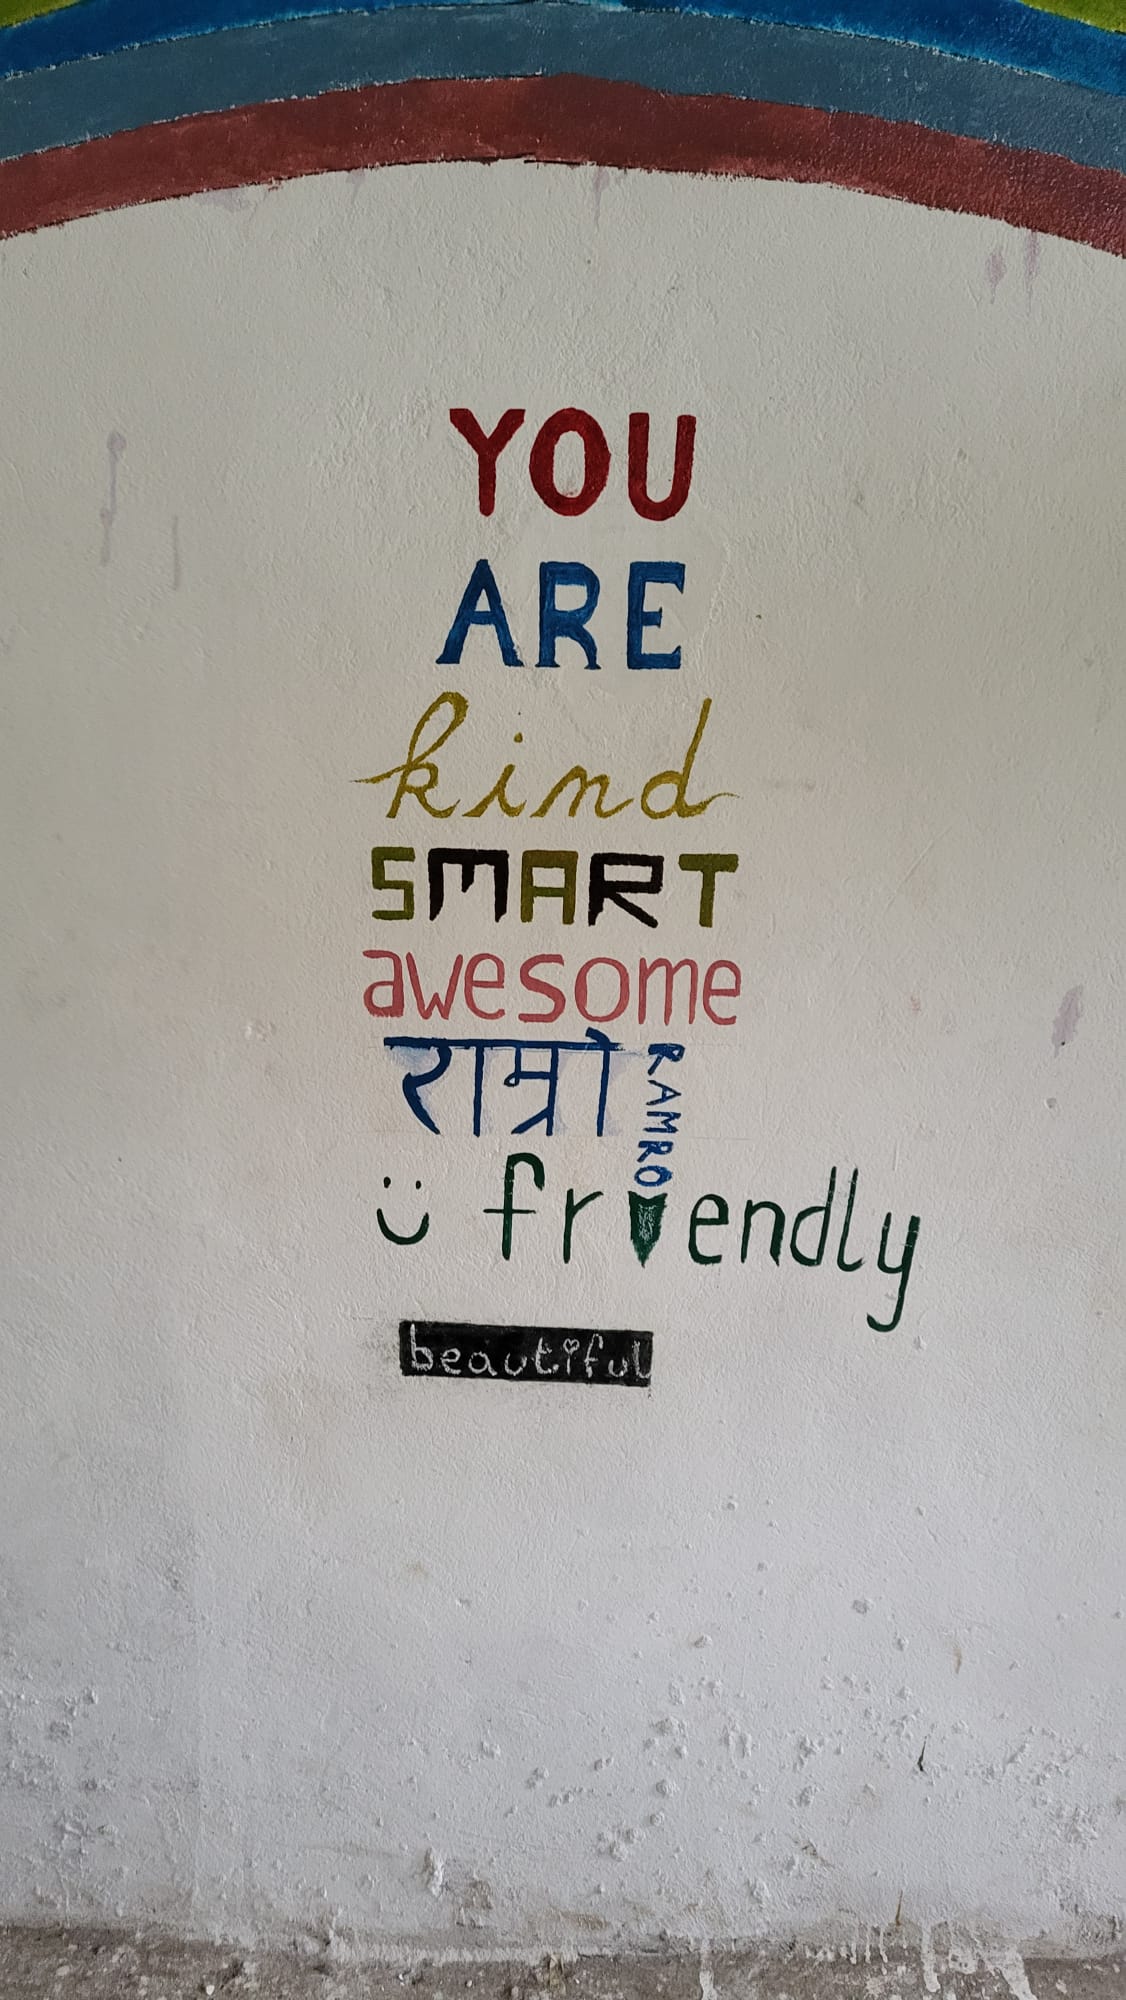 YOU
ARE
kind
SMART
awesome
राम्रो RAMRO
friendly
beautiful